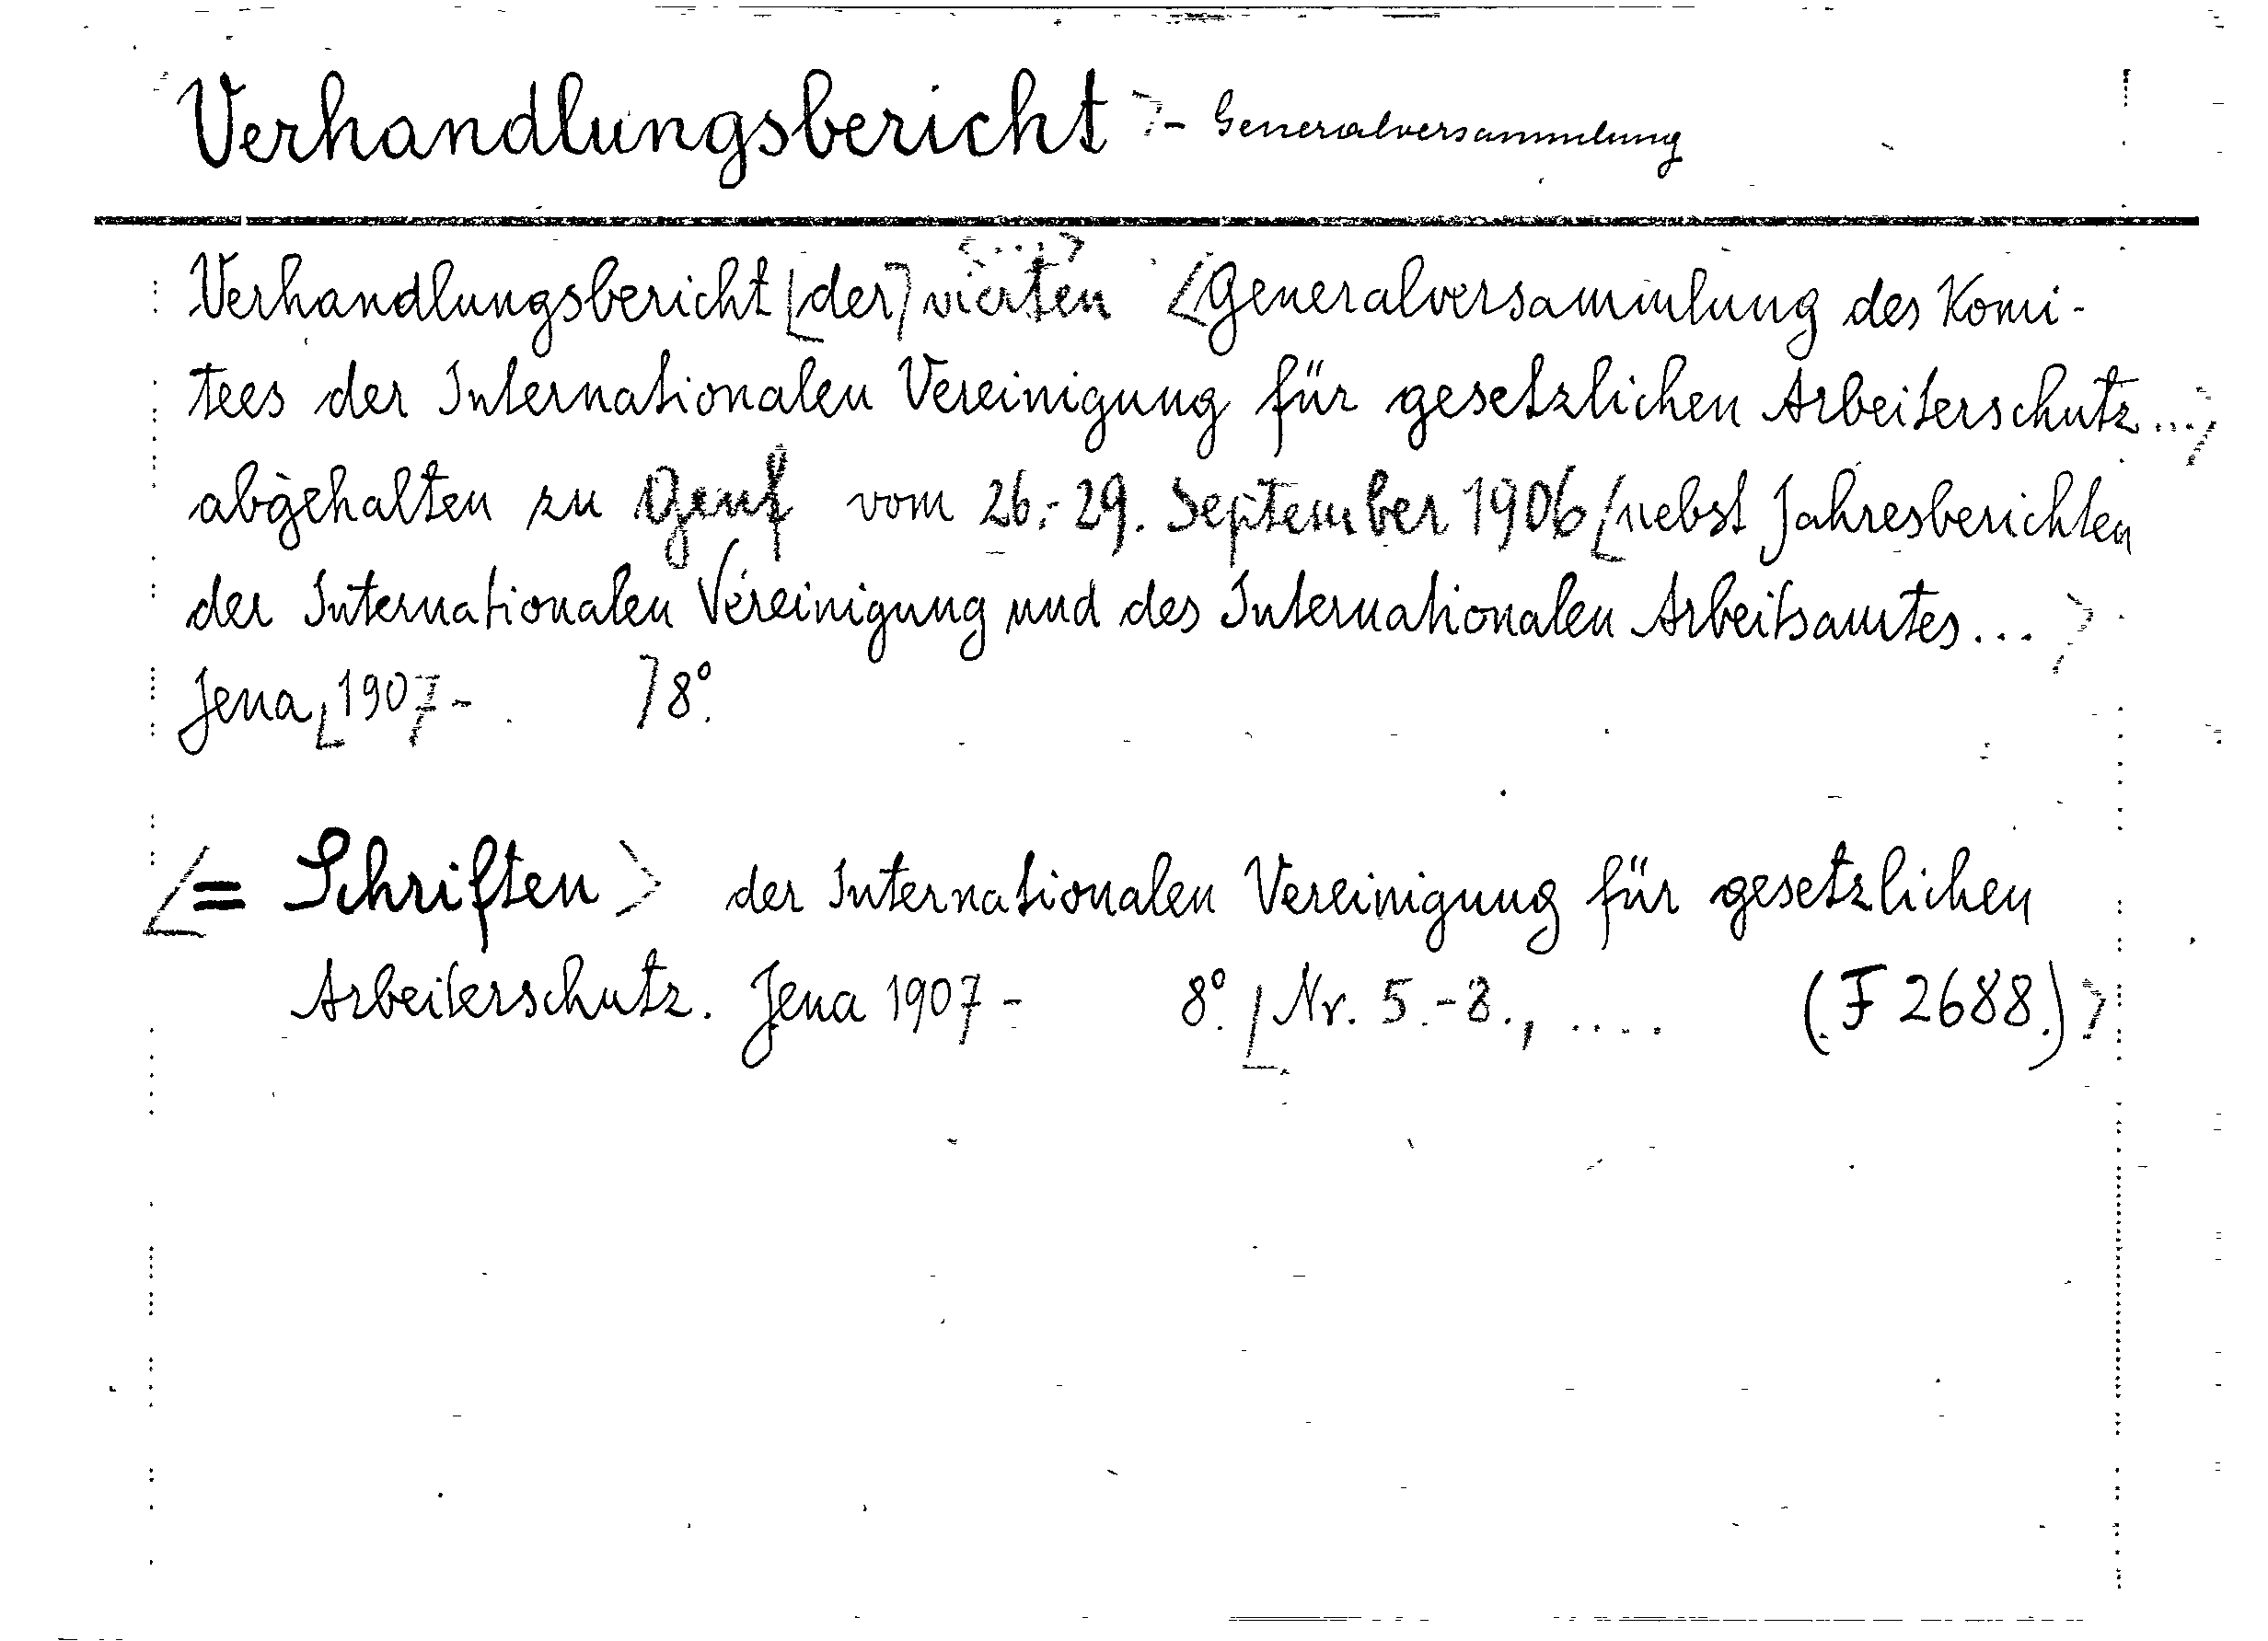 Verhandlungsbericht >- Generalversammlung
<...>
Verhandlungsbericht [der] vierten <Generalversammlung des Komi-
tees der Internationalen Vereinigung für gesetzlichen Arbeiterschutz...>
abgehalten zu Genf vom 26.-29. September 1906 [nebst Jahresberichten
der Internationalen Vereinigung und des Internationalen Arbeitsamtes...>
Jena, [1907- ] 8°.
<= Schriften> der Internationalen Vereinigung für gesetzlichen
Arbeiterschutz. Jena 1907- 8°. [Nr. 5.-8., .... (F 2688.)>